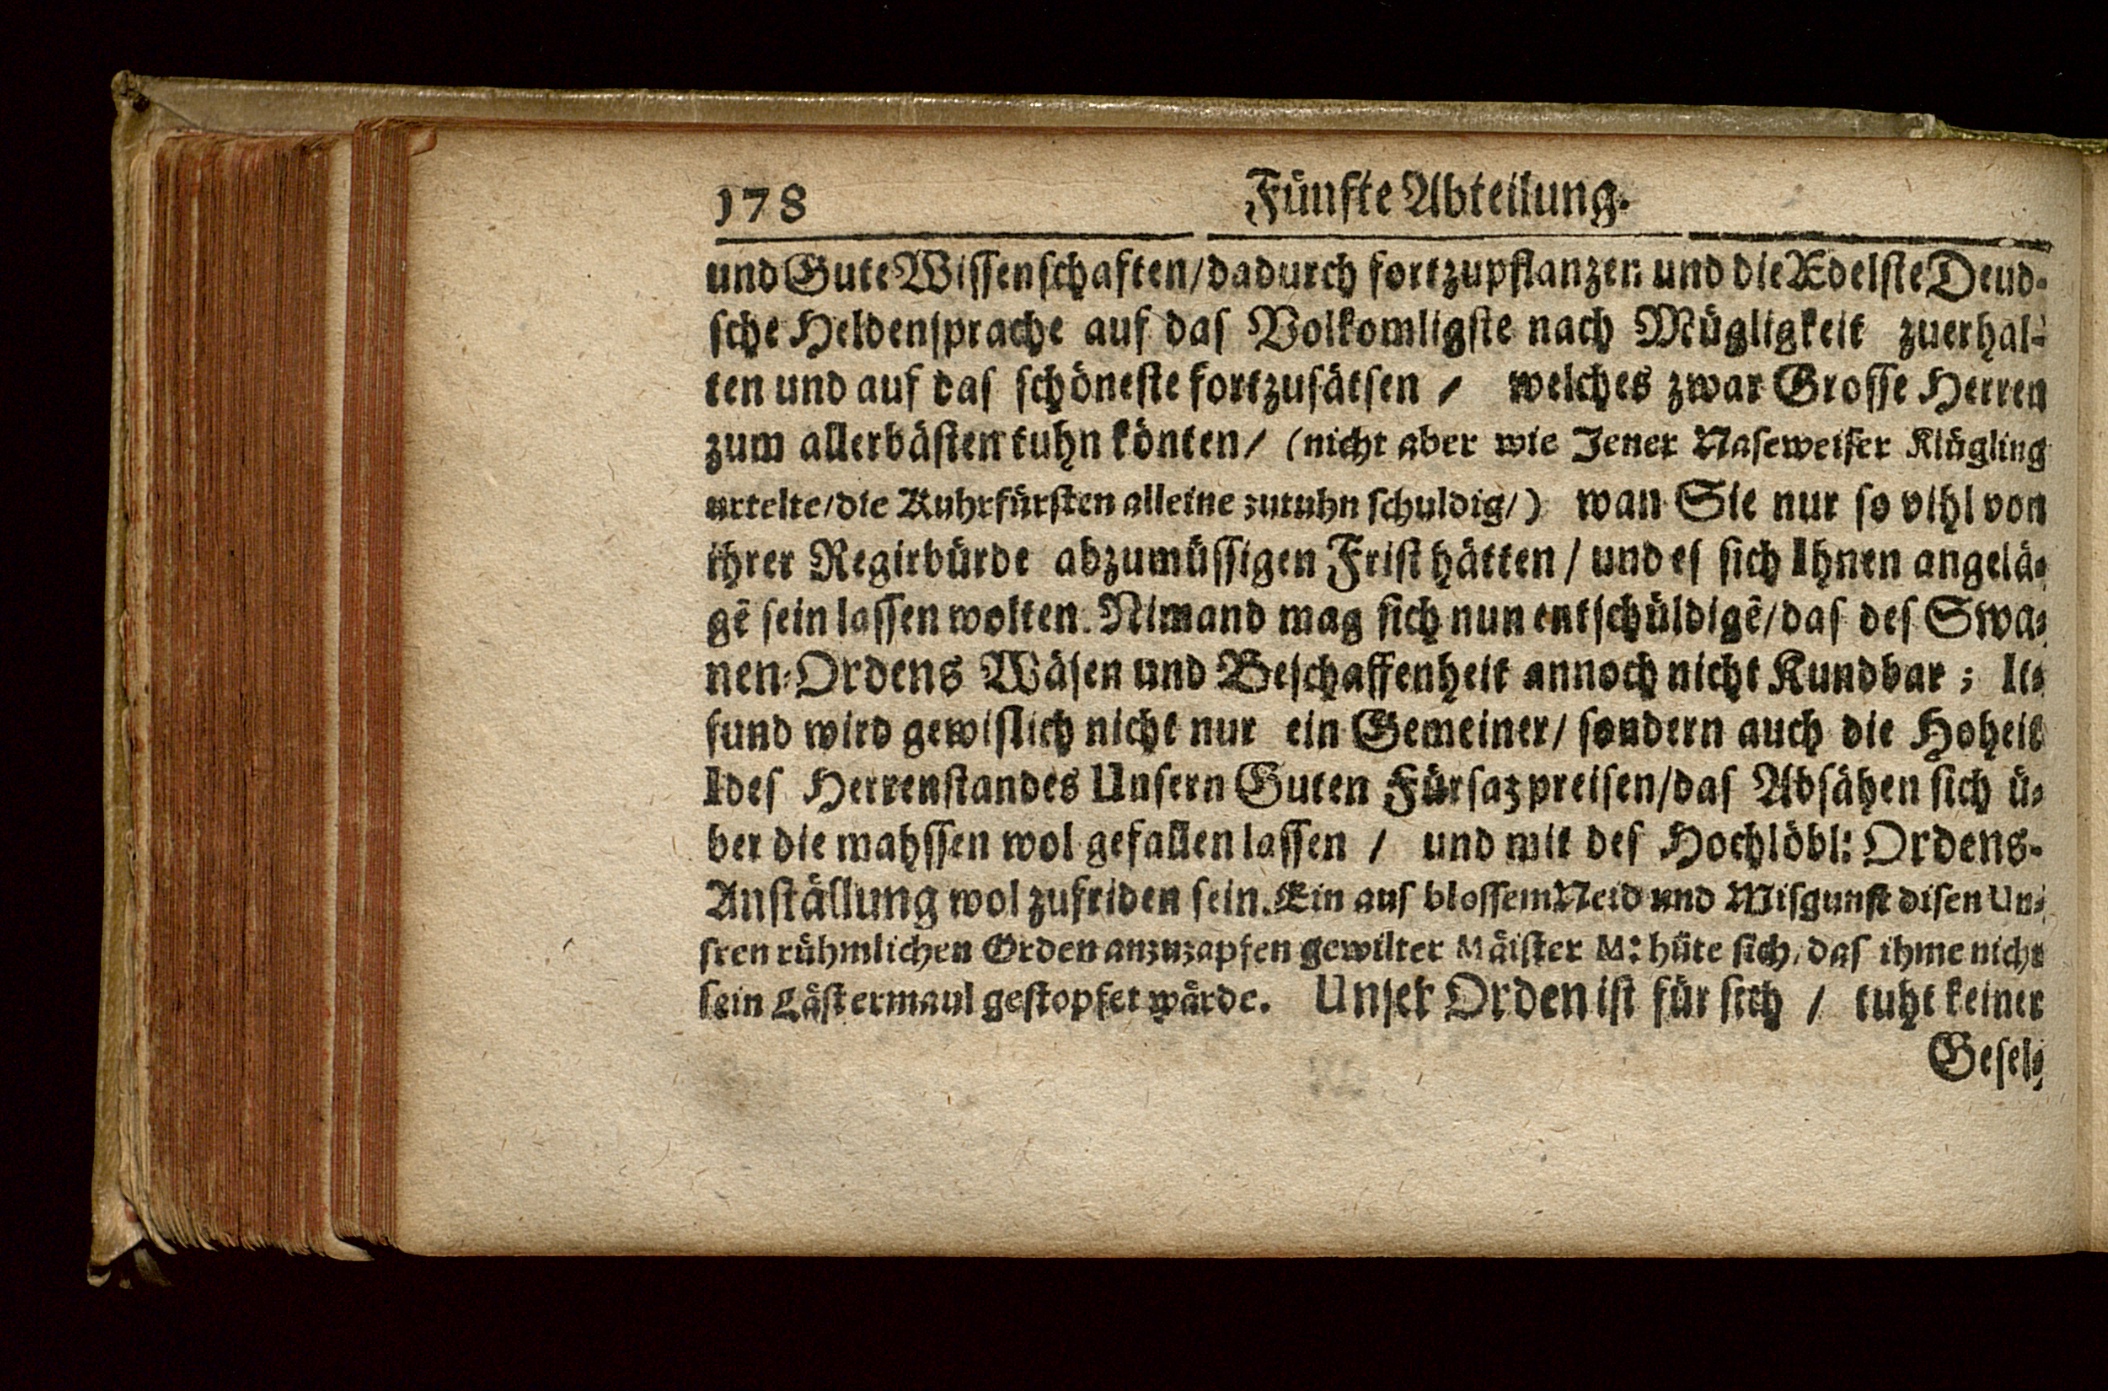 178 Fünfte Abteilung.
und Gute Wissenschaften/dadurch fortzupflanzen und die Ædelste Deud-
sche Heldensprache auf das Volkomligste nach Mügligkeit zuerhal-
ten und auf das schöneste fortzusätsen / welches zwar Grosse Herren
zum allerbästen tuhn könten/ (nicht aber wie Jener Naseweiser Klügling
urtelte/die Kuhrfürsten alleine zutuhn schuldig/) wan Sie nur so vihl von
ihrer Regirbürde abzumüssigen Frist hätten / und es sich Ihnen angelä-
gē sein lassen wolten. Nimand mag sich nun entschüldigē/das des Swa-
nen-Ordens Wäsen und Beschaffenheit annoch nicht Kundbar ; It-
sund wird gewislich nicht nur ein Gemeiner/ sondern auch die Hoheit
Ides Herrenstandes Unsern Guten Fürsaz preisen/das Absähen sich ü-
ber die mahssen wol gefallen lassen / und mit des Hochlöbl: Ordens-
Anställung wol zufriden sein. Ein aus blossem Neid und Misgunst disen Un-
sren rühmlichen Orden anzuzapfen gewilter Mäister M: hüte sich, das ihme nicht
sein Lästermaul gestopfet wärde. Unser Orden ist für sich / tuht keiner
Gesel-